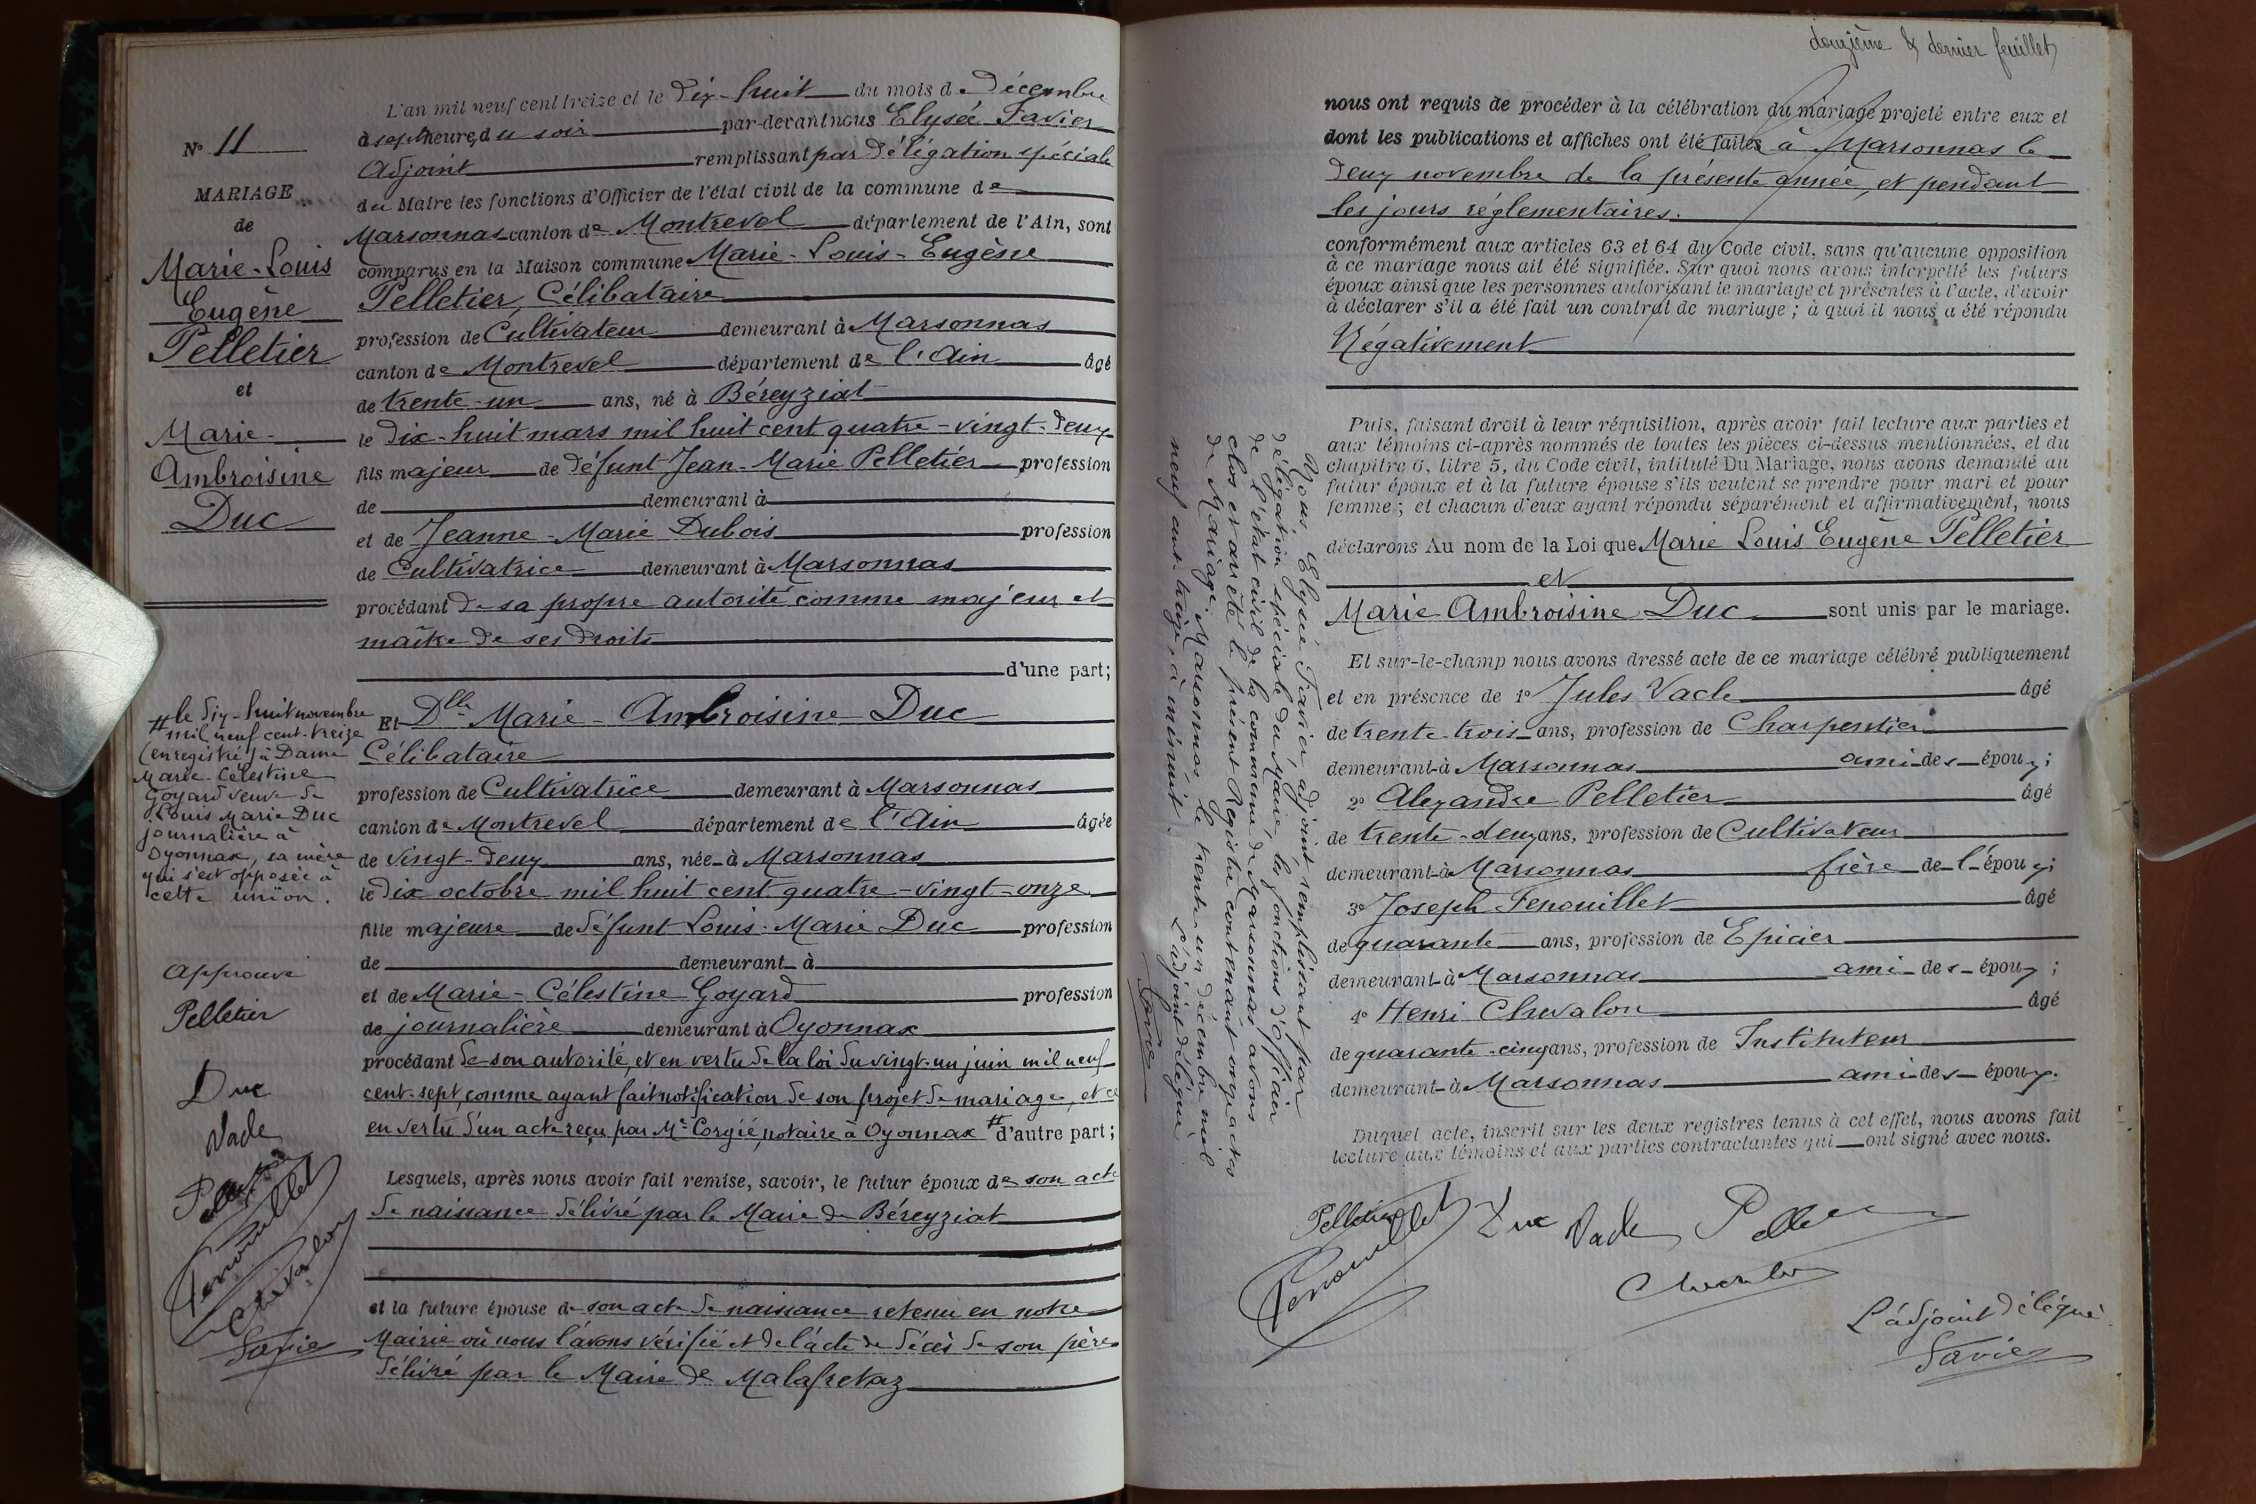 N° 11
MARIAGE
de
Marie-Louis
Eugène
Pelletier
et
Marie-
Ambroisine
Duc
L'an mil neuf cent treize et le dix-huit du mois de Décembre
à sept heures du soir par-devant nous Elysée Favier
Adjoint remplissant par délégation spéciale
du Maire les fonctions d'Officier de l'état civil de la commune de
Marsonnas canton de Montrevel département de l'Ain, sont
comparus en la Maison commune Marie-Louis-Eugène
Pelletier, Célibataire
profession de Cultivateur demeurant à Marsonnas
canton de Montrevel département de l'Ain âgé
de trente-un ans, né à Béreyziat
le dix-huit mars mil huit cent quatre-vingt-deux
fils majeur de défunt Jean-Marie Pelletier profession
de demeurant à
et de Jeanne-Marie Dubois profession
de Cultivatrice demeurant à Marsonnas
procédant de sa propre autorité comme majeur et
maître de ses droits
d'une part;
Et Dlle Marie-Ambroisine Duc
Célibataire
profession de Cultivatrice demeurant à Marsonnas
canton de Montrevel département de l'Ain âgée
de vingt-deux ans, née à Marsonnas
le dix octobre mil huit cent quatre-vingt-onze
fille majeure de défunt Louis-Marie Duc profession
de demeurant à
et de Marie-Célestine Goyard profession
de journalière demeurant à Oyonnax
procédant de son autorité, et en vertu de la loi du vingt-un juin mil neuf
cent-sept, comme ayant fait notification de son projet de mariage, et ce
en vertu d'un acte reçu par Me Corgié, notaire à Oyonnax # d'autre part;
Lesquels, après nous avoir fait remise, savoir, le futur époux de son acte
de naissance délivré par le Maire de Béreyziat
et la future épouse de son acte de naissance retenu en notre
Mairie où nous l'avons vérifié et de l'acte de décès de son père
délivré par le Maire de Malafretaz
# le dix-huit novembre
mil neuf cent-treize
(enregistré) à Dame
Marie-Célestine
Goyard veuve de
Louis Marie Duc
journalière à
Oyonnax, sa mère
qui s'est opposée à
cette union.
Approuvé
Pelletier
Duc
Vacle
Pelletier
Fenouillet
Chevalon
Favier
douzième & dernier feuillet
nous ont requis de procéder à la célébration du mariage projeté entre eux et
dont les publications et affiches ont été faites à Marsonnas le
deux novembre de la présente année, et pendant
les jours réglementaires.
conformément aux articles 63 et 64 du Code civil, sans qu'aucune opposition
à ce mariage nous ait été signifiée. Sur quoi nous avons interpellé les futurs
époux ainsi que les personnes autorisant le mariage et présentes à l'acte, d'avoir
à déclarer s'il a été fait un contrat de mariage; à quoi il nous a été répondu
Négativement
Puis, faisant droit à leur réquisition, après avoir fait lecture aux parties et
aux témoins ci-après nommés de toutes les pièces ci-dessus mentionnées, et du
chapitre 6, titre 5, du Code civil, intitulé Du Mariage, nous avons demandé au
futur époux et à la future épouse s'ils veulent se prendre pour mari et pour
femme; et chacun d'eux ayant répondu séparément et affirmativement, nous
déclarons Au nom de la Loi que Marie Louis Eugène Pelletier
et
Marie Ambroisine Duc sont unis par le mariage.
Et sur-le-champ nous avons dressé acte de ce mariage célébré publiquement
et en présence de 1° Jules Vacle âgé
de trente-trois ans, profession de Charpentier
demeurant à Marsonnas ami des époux;
2° Alexandre Pelletier âgé
de trente-deux ans, profession de Cultivateur
demeurant à Marsonnas frère de l'époux;
3° Joseph Fenouillet âgé
de quarante ans, profession de Epicier
demeurant à Marsonnas ami des époux;
4° Henri Chevalon âgé
de quarante-cinq ans, profession de Instituteur
demeurant à Marsonnas ami des époux.
Duquel acte, inscrit sur les deux registres tenus à cet effet, nous avons fait
lecture aux témoins et aux parties contractantes qui ont signé avec nous.
Pelletier Duc Vacle Pelletier
Fenouillet Chevalon
L'adjoint délégué
Favier
Nous, Elysée Favier, adjoint remplissant par
délégation spéciale du Maire, les fonctions d'Officier
de l'état civil de la commune de Marsonnas avons
clos et arrêté le présent Registre contenant onze actes
de Mariage. Marsonnas, le trente-un décembre mil
neuf cent-treize, à minuit.
L'adjoint délégué
Favier